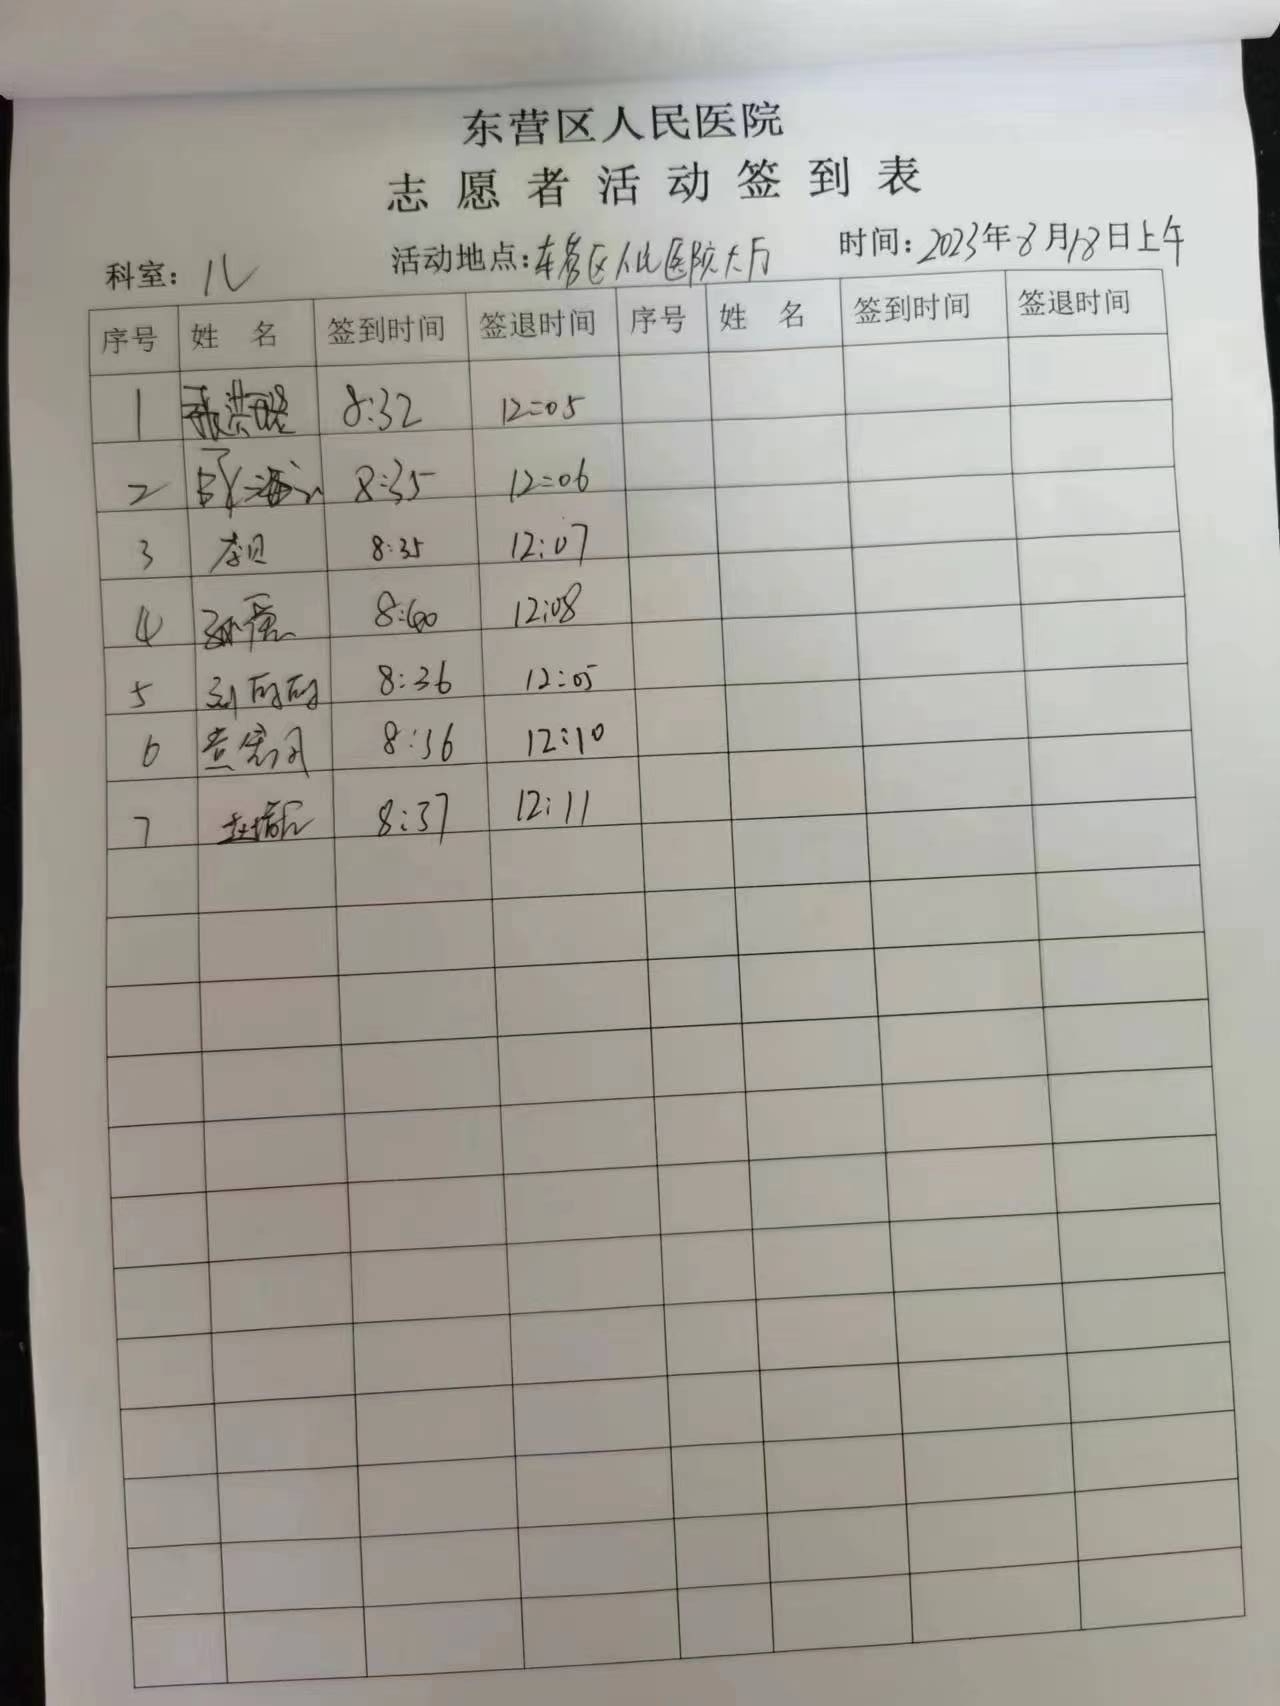 东营区人民医院
志愿者活动签到表
科室: 儿 活动地点:东营区人民医院大厅 时间:2023年8月18日上午
序号 姓 名 签到时间 签退时间 序号 姓 名 签到时间 签退时间
1 8:32 12:05
2 8:35 12:06
3 李贝 8:35 12:07
4 8:40 12:08
5 刘 8:36 12:05
6 8:36 12:10
7 8:37 12:11